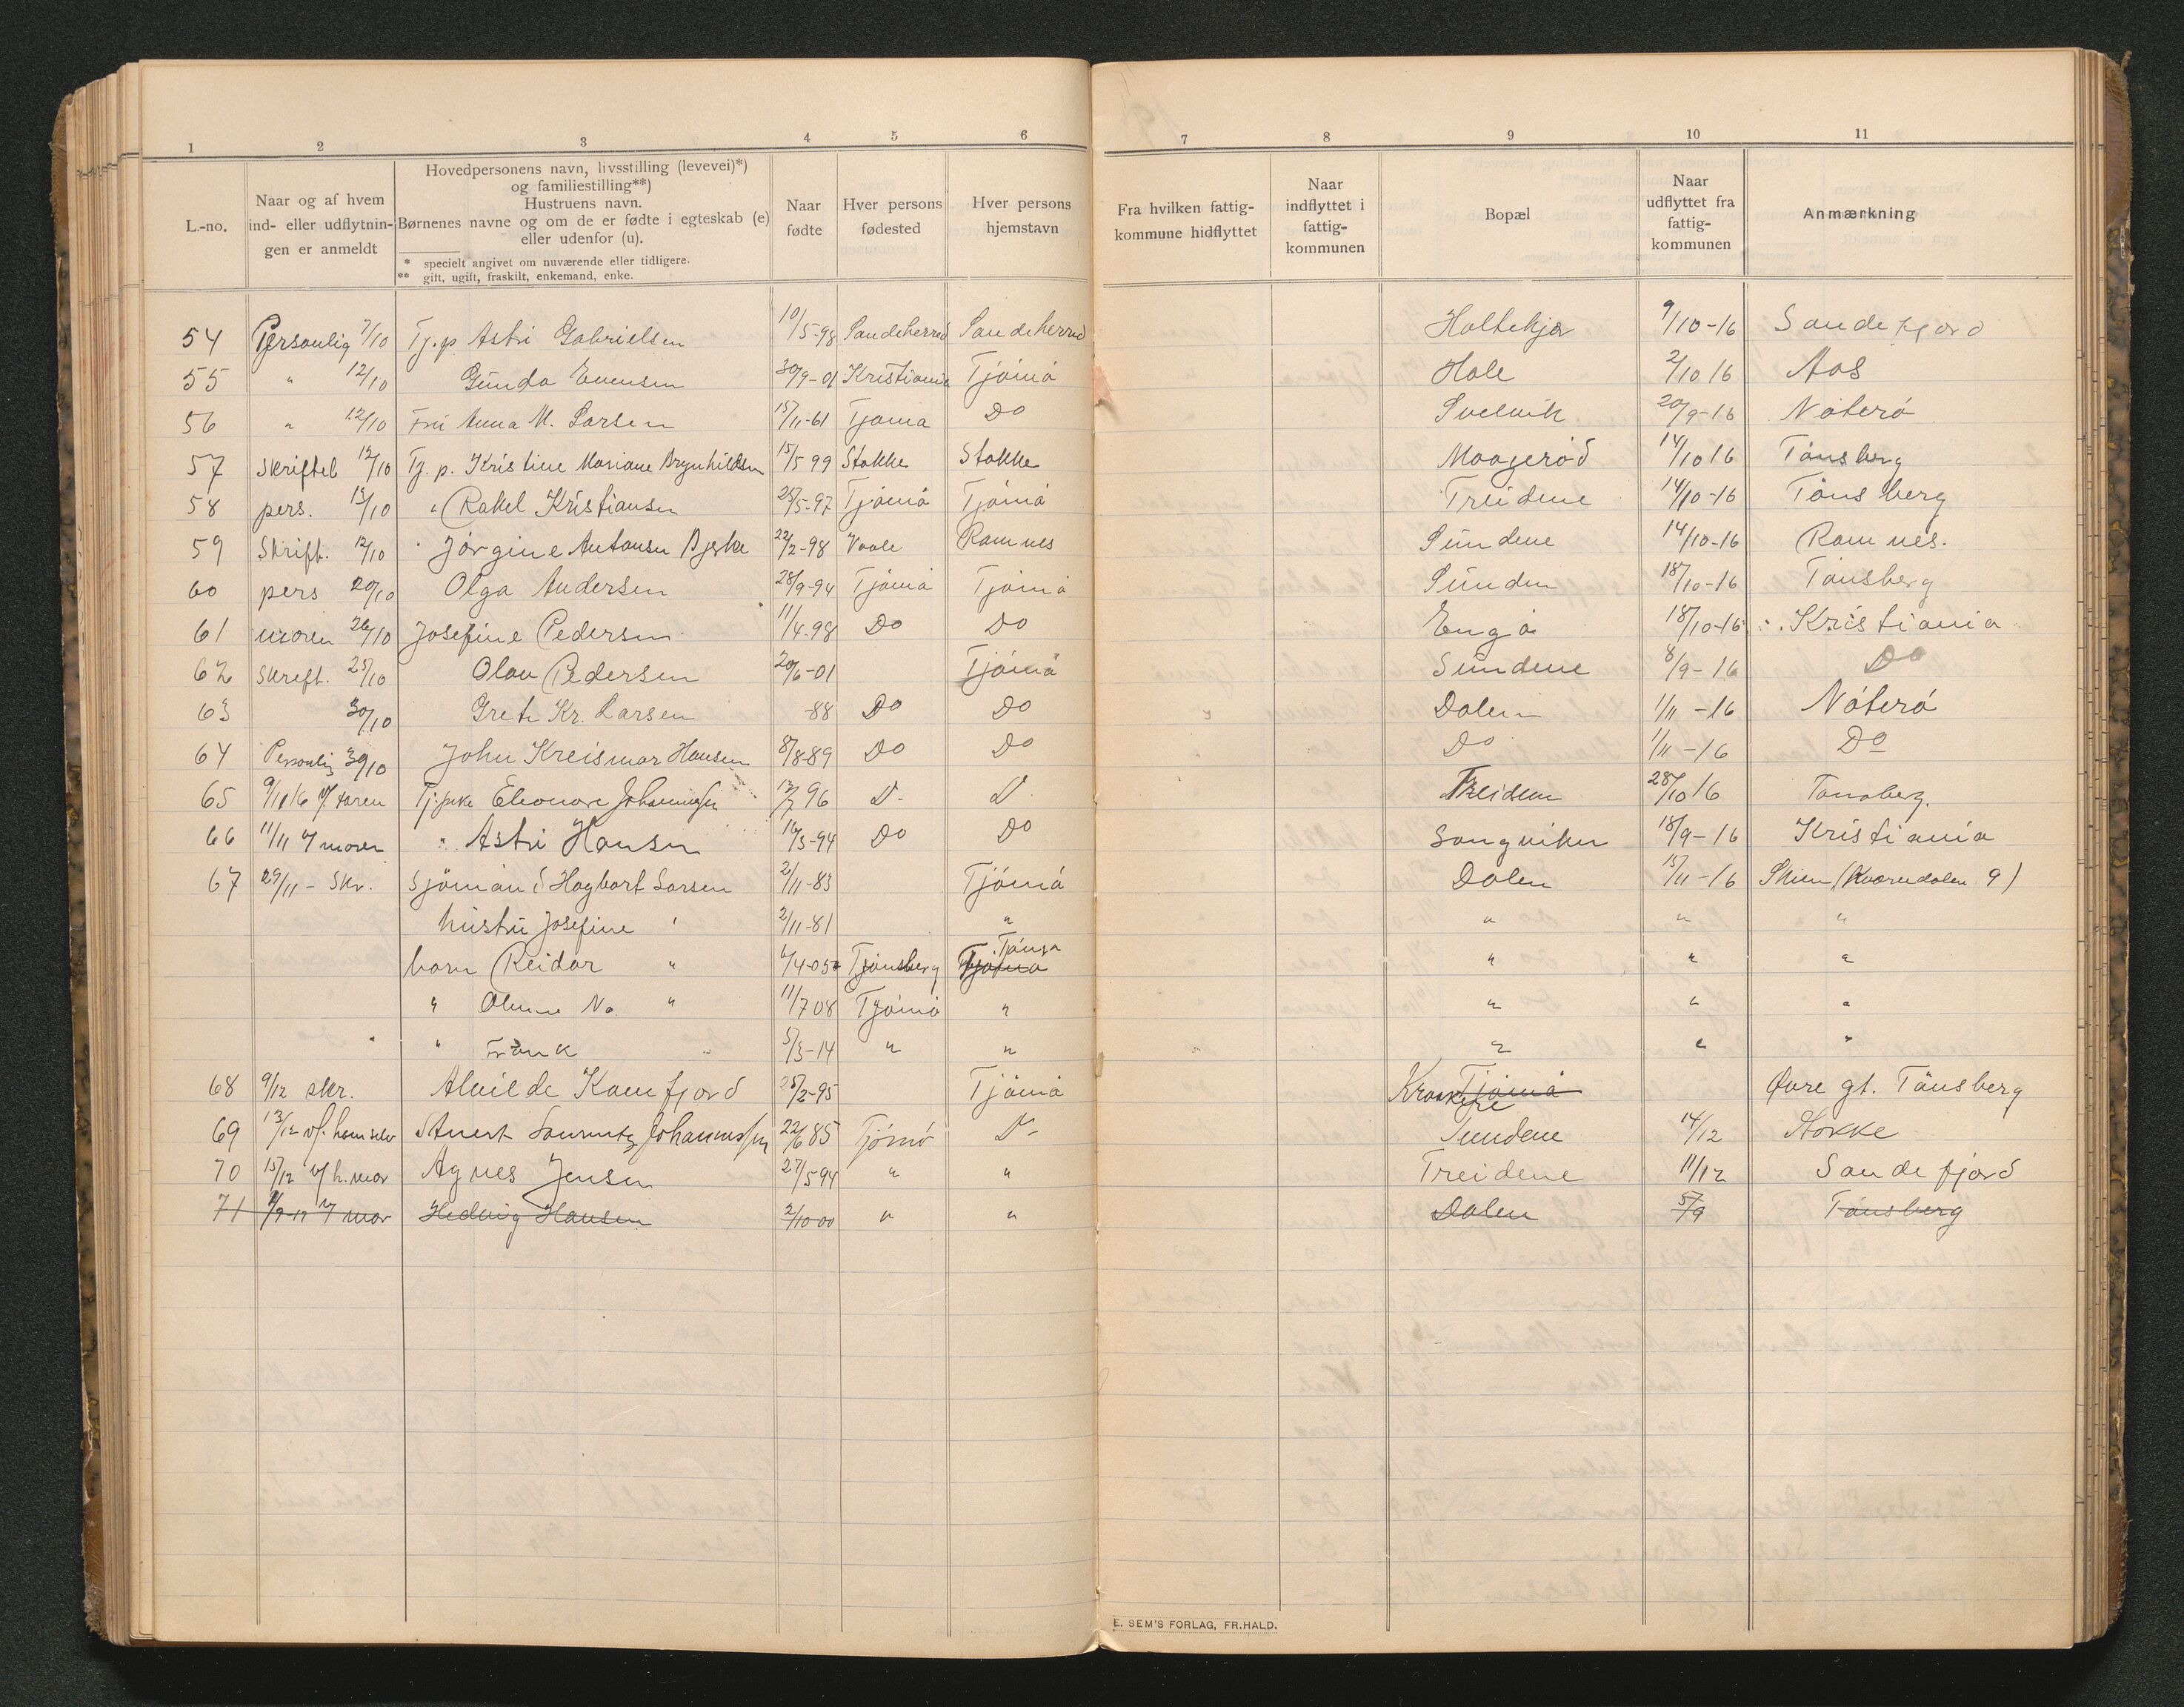 1 2 3 4 5 6 7 8 9 10 11
L.-no.
Naar og af hvem
ind- eller udflytnin-
gen er anmeldt
Hovedpersonens navn, livsstilling (levevei)*)
og familiestilling**)
Hustruens navn.
Børnenes navne og om de er fødte i egteskab (e)
eller udenfor (u).
* specielt angivet om nuværende eller tidligere.
** gift, ugift, fraskilt, enkemand, enke.
Naar
fødte
Hver persons
fødested
Hver persons
hjemstavn
Fra hvilken fattig-
kommune hidflyttet
Naar
indflyttet i
fattig-
kommunen
Bopæl
Naar
udflyttet fra
fattig-
kommunen
Anmærkning
54 Personlig 7/10 Tj.p Astri Gabrielsen 10/5-98 Sandeherred Sandeherred Holtekjær 9/10-16 Sandefjord
55 " 12/10 Gunda Evensen 30/9-01 Kristiania Tjømø Hole 2/10 16 Aas
56 " 12/10 Fru Anna M. Larsen 15/11-61 Tjømø Do Svelvik 20/9-16 Nøterø
57 Skriftel 12/10 Tj. p. Kristine Mariane Brynhildsen 15/5 99 Stokke Stokke Maagerød 14/10 16 Tønsberg
58 pers. 13/10 " Rakel Kristiansen 25/5-97 Tjømø Tjømø Treidene 14/10-16 Tønsberg
59 Skrift. 12/10 " Jørgine Antonsen Bjerke 22/2-98 Vaale Ramnes Sundene 14/10-16 Ramnes.
60 pers 20/10 Olga Andersen 28/9-94 Tjømø Tjømø Sunden 18/10-16 Tønsberg
61 moren 26/10 Josefine Pedersen 11/4-98 Do Do Engø 18/10-16 Kristiania
62 Skreft. 25/10 Olav Pedersen 20/6-01 Tjømø Sundene 8/9-16 Do
63 30/10 Grete Kr. Larsen -88 Do Do Dalen 1/11-16 Nøterø
64 Personlig 30/10 John Kreismar Hansen 8/8-89 Do Do Do 1/11-16 Do
65 9/11 16 v/ faren Tj.pike Eleonore Johannessen 13/7 96 D- D Treidene 28/10 16 Tønsberg.
66 11/11 v/ moren " Astri Hansen 16/3-94 Do Do Sangviken 18/9-16 Kristiania
67 29/11 - Skr. Sjømand Hagbart Larsen 2/11-83 Tjømø Dalen 15/11-16 Skien (Kværndalen 9)
hustru Josefine " 2/11-81 " " " "
barn Reidar " 6/4-05 Tjønsberg Tønsb Tjømø " " "
" " 11/7 08 Tjømø " " " "
" " Frank " 5/3-14 " " " " "
68 9/12 skr. Alvilde Kamfjord 25/2-95 Tjømø Tjømø Krakere Øvre gt. Tønsberg
69 13/12 v/ ham selv Johannessen 22/6 85 Tjømø D- Sundene 14/12 Stokke
70 15/12 v/ h. mor Agnes Jensen 27/5 94 " " Treidene 11/12 Sandefjord
71 v/ mor Hedvig Hansen 2/10-00 " " Dalen 5/9 Tønsberg
E. SEM'S FORLAG, FR.HALD.